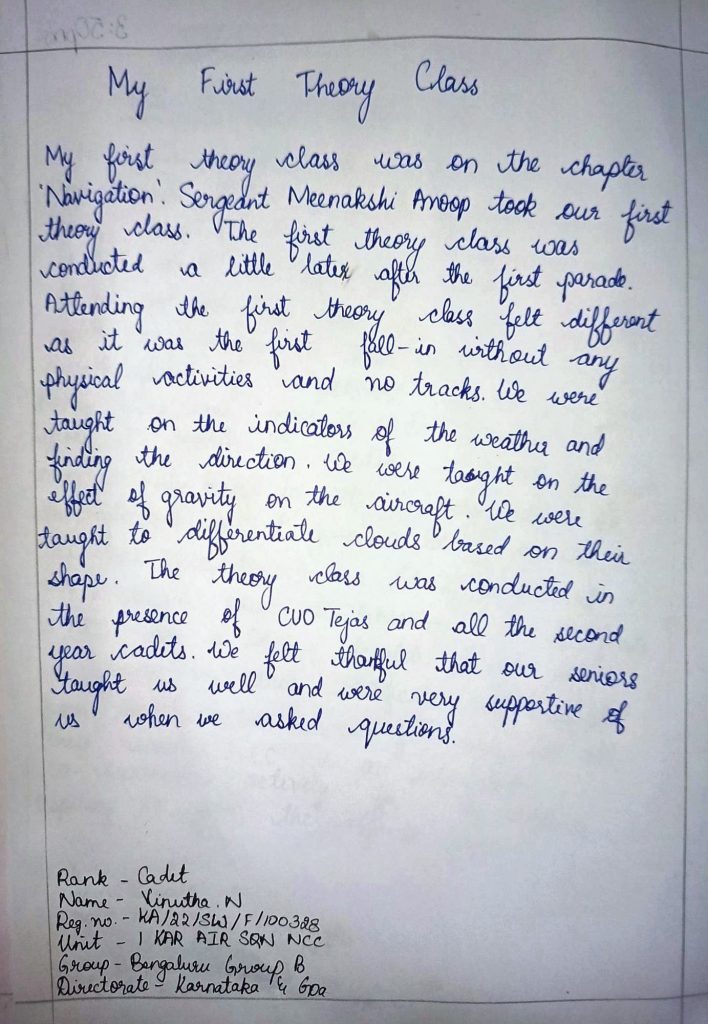 My First Theory Class
My first theory class was on the chapter
'Navigation'. Sergeant Meenakshi Anoop took our first
theory class. The first theory class was
conducted a little later after the first parade.
Attending the first theory class felt different
as it was the first fall-in without any
physical activities and no tracks. We were
taught on the indicators of the weather and
finding the direction. We were taught on the
effect of gravity on the aircraft. We were
taught to differentiate clouds based on their
shape. The theory class was conducted in
the presence of CUO Tejas and all the second
year cadets. We felt thankful that our seniors
taught us well and were very supportive of
us when we asked questions.
Rank - Cadet
Name - Vinutha . N
Reg. no. - KA/22/SW/F/100328
Unit - 1 KAR AIR SQN NCC
Group - Bengaluru Group B
Directorate - Karnataka & Goa